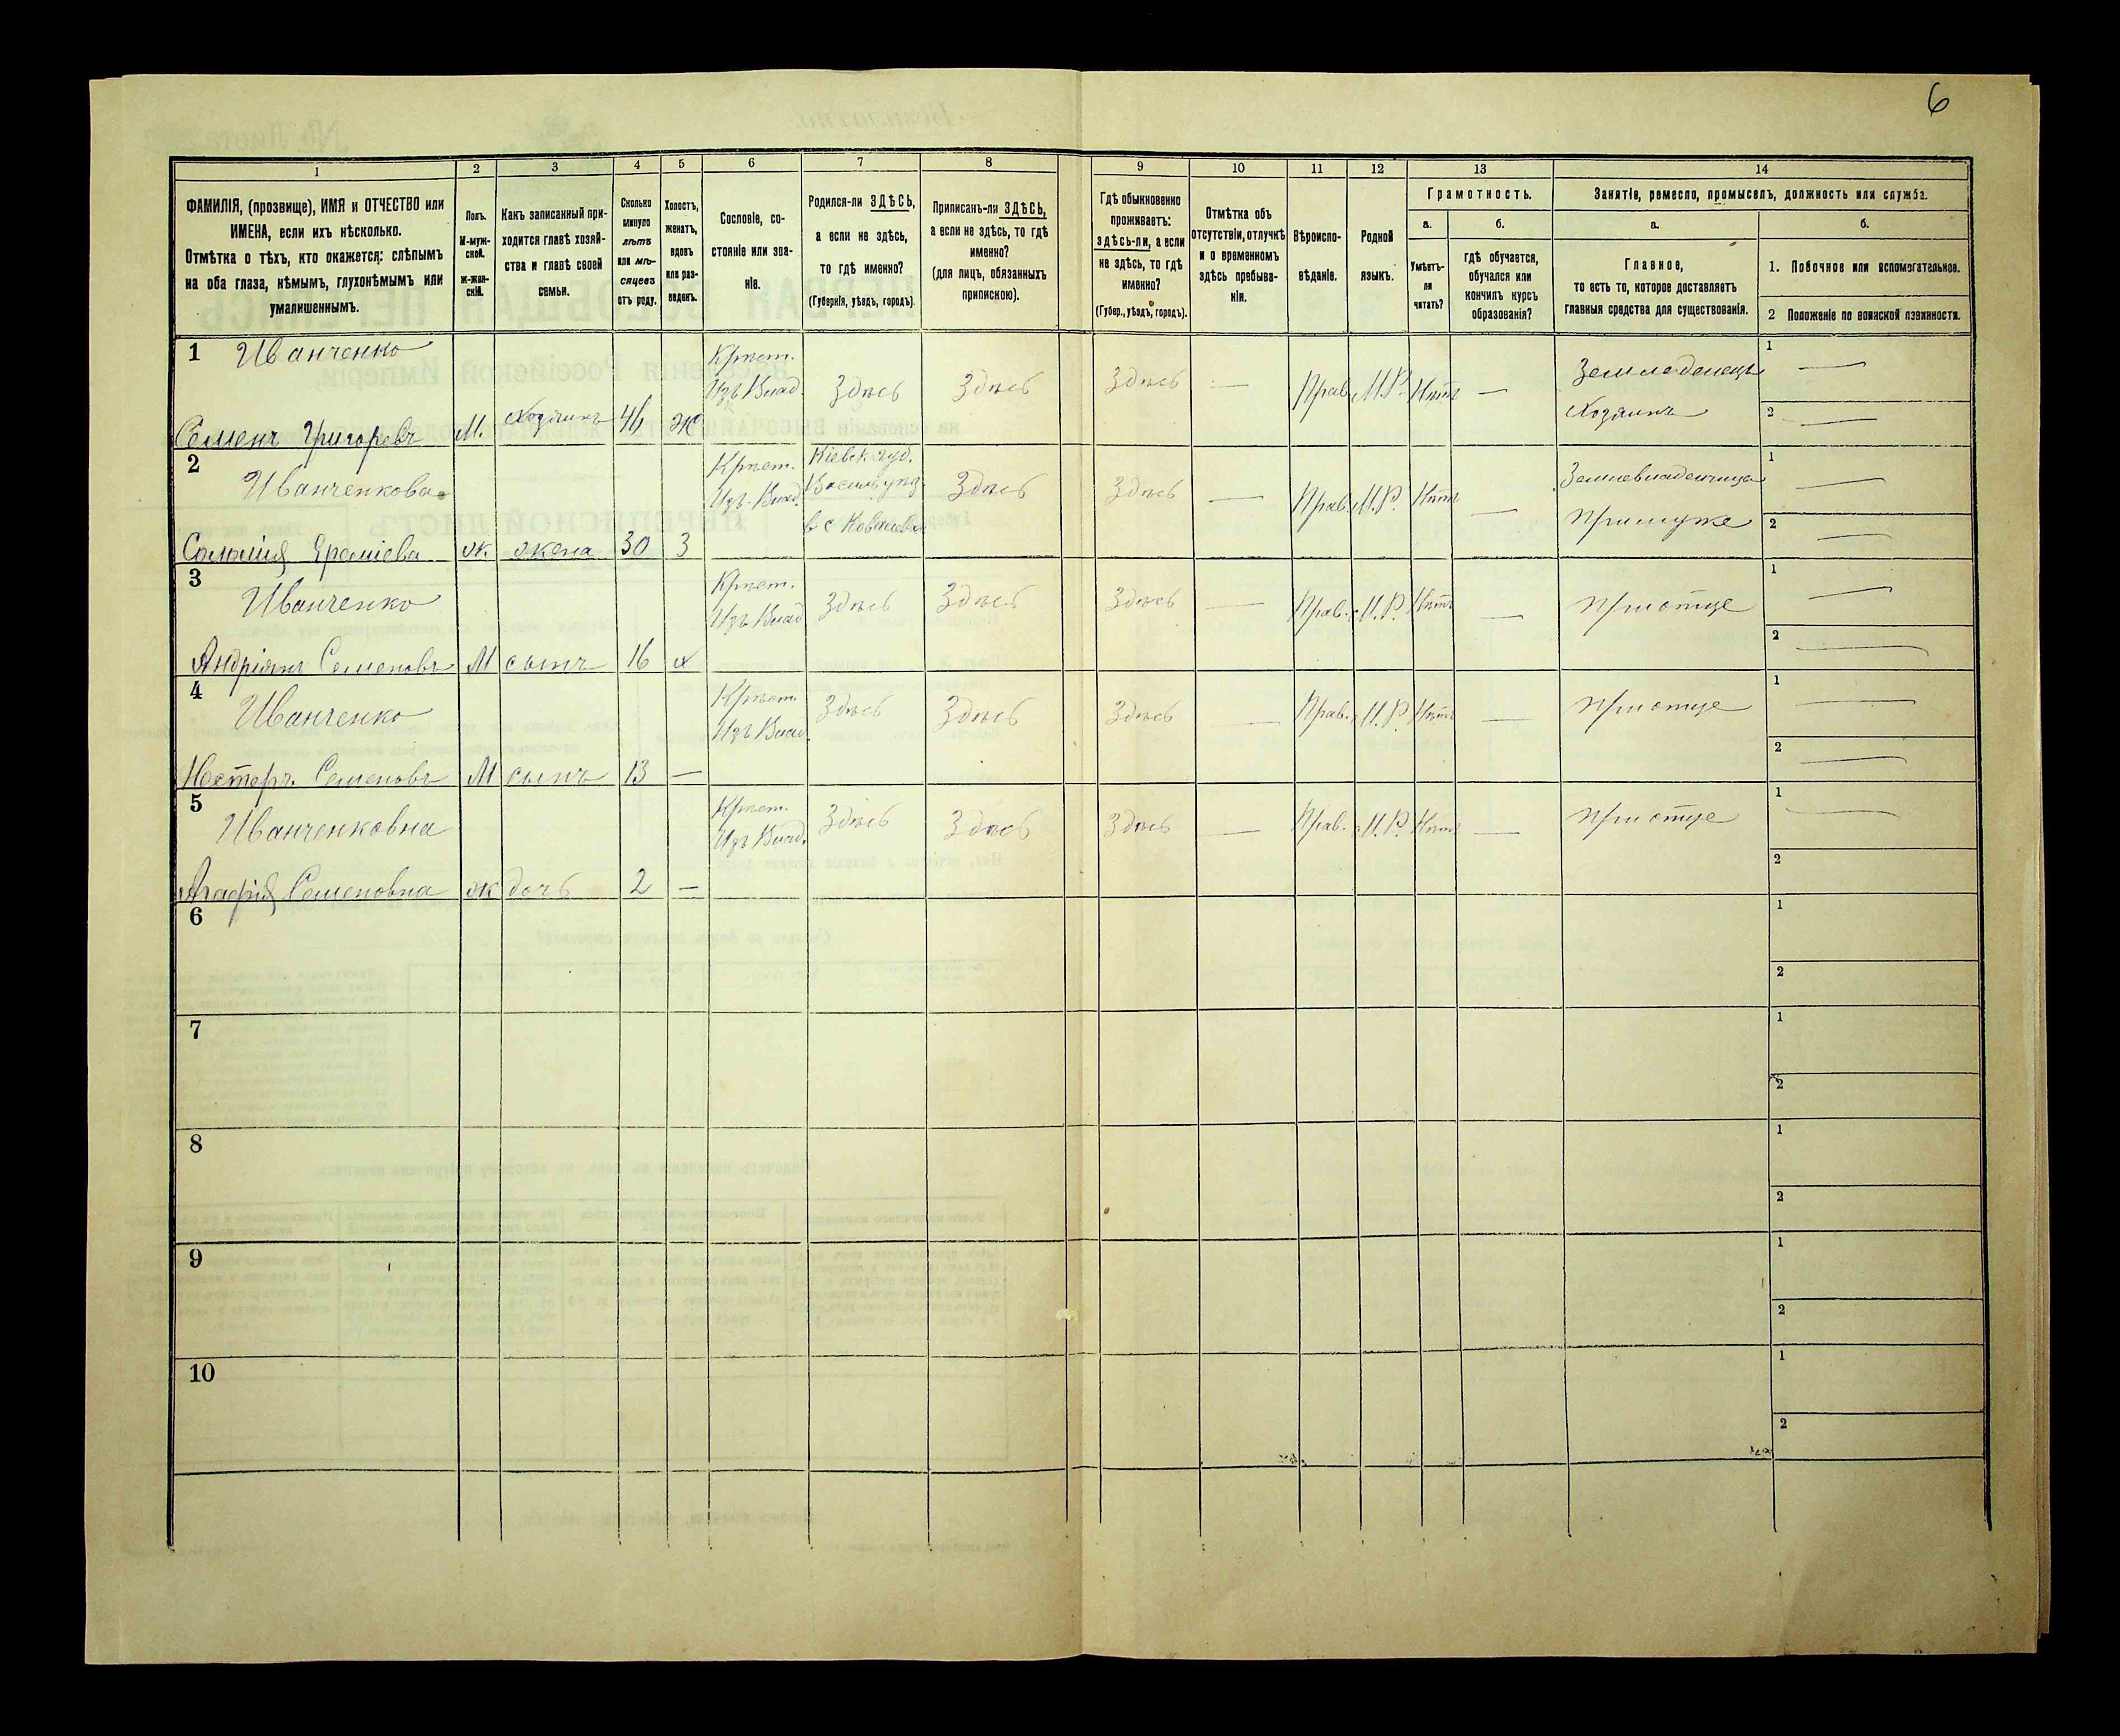 6
1 2 3 4 5 6 7 8 9 10 11 12 13 14
ФАМИЛІЯ, (прозвище), ИМЯ и ОТЧЕСТВО или
ИМЕНА, если ихъ нѣсколько.
Отмѣтка о тѣхъ, кто окажется: слѣпымъ
на оба глаза, нѣмымъ, глухонѣмымъ или
умалишеннымъ.
Полъ.
М-муж-
ской.
Ж-жен-
скій.
Какъ записанный при-
ходится главѣ хозяй-
ства и главѣ своей
семьи.
Сколько
минуло
лѣтъ
или мѣ-
сяцевъ
отъ роду.
Холостъ,
женатъ,
вдовъ
или раз-
веденъ.
Сословіе, со-
стояніе или зва-
ніе.
Родился-ли ЗДѢСЬ,
а если не здѣсь,
то гдѣ именно?
(Губернія, уѣздъ, городъ).
Приписанъ-ли ЗДѢСЬ,
а если не здѣсь, то гдѣ
именно?
(для лицъ, обязанныхъ
припискою).
Гдѣ обыкновенно
проживаетъ:
здѣсь-ли, а если
не здѣсь, то гдѣ
именно?
(Губер., уѣздъ, городъ).
Отмѣтка объ
отсутствіи, отлучкѣ
и о временномъ
здѣсь пребыва-
ніи.
Вѣроиспо-
вѣданіе.
Родной
языкъ.
Грамотность.
а.
Умѣетъ-
ли
читать?
б.
гдѣ обучается,
обучался или
кончилъ курсъ
образованія?
Занятіе, ремесло, промыселъ, должность или служба.
а.
Главное,
то есть то, которое доставляетъ
главныя средства для существованія.
б.
1. Побочное или вспомогательное.
2 Положеніе по воинской повинности.
1 Иванченко
Семенъ Григорьевъ М. Хозяинъ 46 Ж
Крѣст.
Изъ Влад. Здѣсь Здѣсь Здѣсь — Прав. М.Р. Нѣтъ —
Землевладелецъ
Хозяинъ
1 —
2 —
2 Иванченкова
Соломія Еремієва ж жена 30 З
Крѣст.
Изъ Влад.
Кіевск. губ.
Васильк. уѣз.
в с Ковалевка
Здѣсь Здѣсь — Прав. М.Р. Нѣтъ —
Землевладелица
При муже
1 —
2 —
3 Иванченко
Андріянъ Семеновъ М сынъ 16 х
Крѣст.
Изъ Влад Здѣсь Здѣсь Здѣсь — Прав. М.Р. Нѣтъ — При отце
1 —
2 —
4 Иванченко
Нестеръ Семеновъ М сынъ 13 —
Крѣст.
Изъ Влад. Здѣсь Здѣсь Здѣсь — Прав. М.Р. Нѣтъ — При отце
1 —
2 —
5 Иванченковна
Агафія Семеновна ж дочь 2 —
Крѣст.
Изъ Влад. Здѣсь Здѣсь Здѣсь — Прав. М.Р. Нѣтъ — При отце
1 —
2
6
1
2
7
1
2
8
1
2
9
1
2
10
1
2